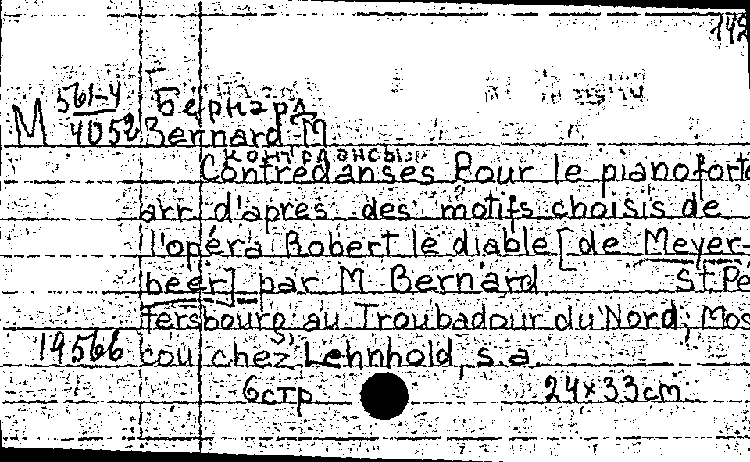 142
М 561-4 Бернард
4052 Bernard M
контрдансы
Contredanses Pour le pianoforte
arr d'apres des motifs choisis de
l'opéra Robert le diable [de Meyer-
beer] par M Bernard St Pe
tersbourg au Troubadour du Nord; Mos
19566 cou chez Lehnhold, s.a.
6стр 24x33cm